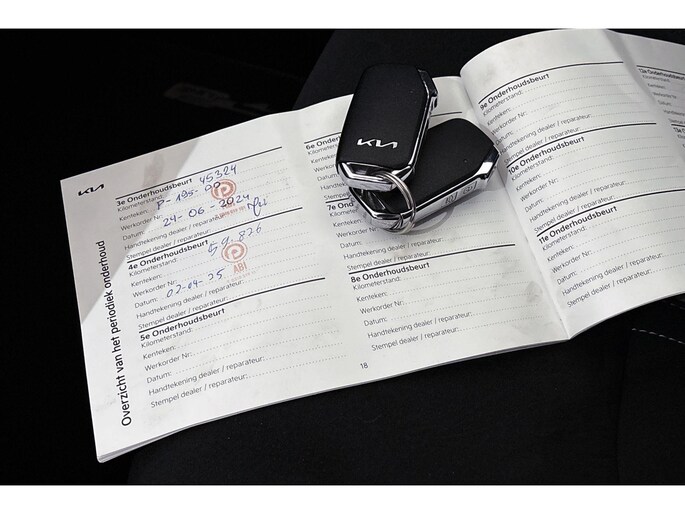 KIA
Overzicht van het periodiek onderhoud
3e Onderhoudsbeurt
Kilometerstand: 45324
Kenteken: P-195-
Werkorder Nr:
Datum: 24-06-2024
Handtekening dealer / reparateur:
Stempel dealer / reparateur:
4e Onderhoudsbeurt
Kilometerstand: 59.826
Kenteken:
Werkorder Nr: ABI
Datum: 02-04-25
Handtekening dealer / reparateur:
Stempel dealer / reparateur:
5e Onderhoudsbeurt
Kilometerstand:
Kenteken:
Werkorder Nr:
Datum:
Handtekening dealer / reparateur:
Stempel dealer / reparateur:
6e Onderhoudsbeurt
Kilometerstand:
Kenteken:
KIA
7e
8e Onderhoudsbeurt
Kilometerstand:
Kenteken:
Werkorder Nr:
Datum:
Handtekening dealer / reparateur:
Stempel dealer / reparateur:
18
9e Onderhoudsbeurt
Kilometerstand:
Kenteken:
Werkorder Nr:
Datum:
Handtekening dealer / reparateur:
Stempel dealer / reparateur:
10e Onderhoudsbeurt
Kilometerstand:
Kenteken:
Werkorder Nr:
Datum:
Handtekening dealer / reparateur:
Stempel dealer / reparateur:
11e Onderhoudsbeurt
Kilometerstand:
Kenteken:
Werkorder Nr:
Datum:
Handtekening dealer / reparateur:
Stempel dealer / reparateur:
12e Onderhoudsbeurt